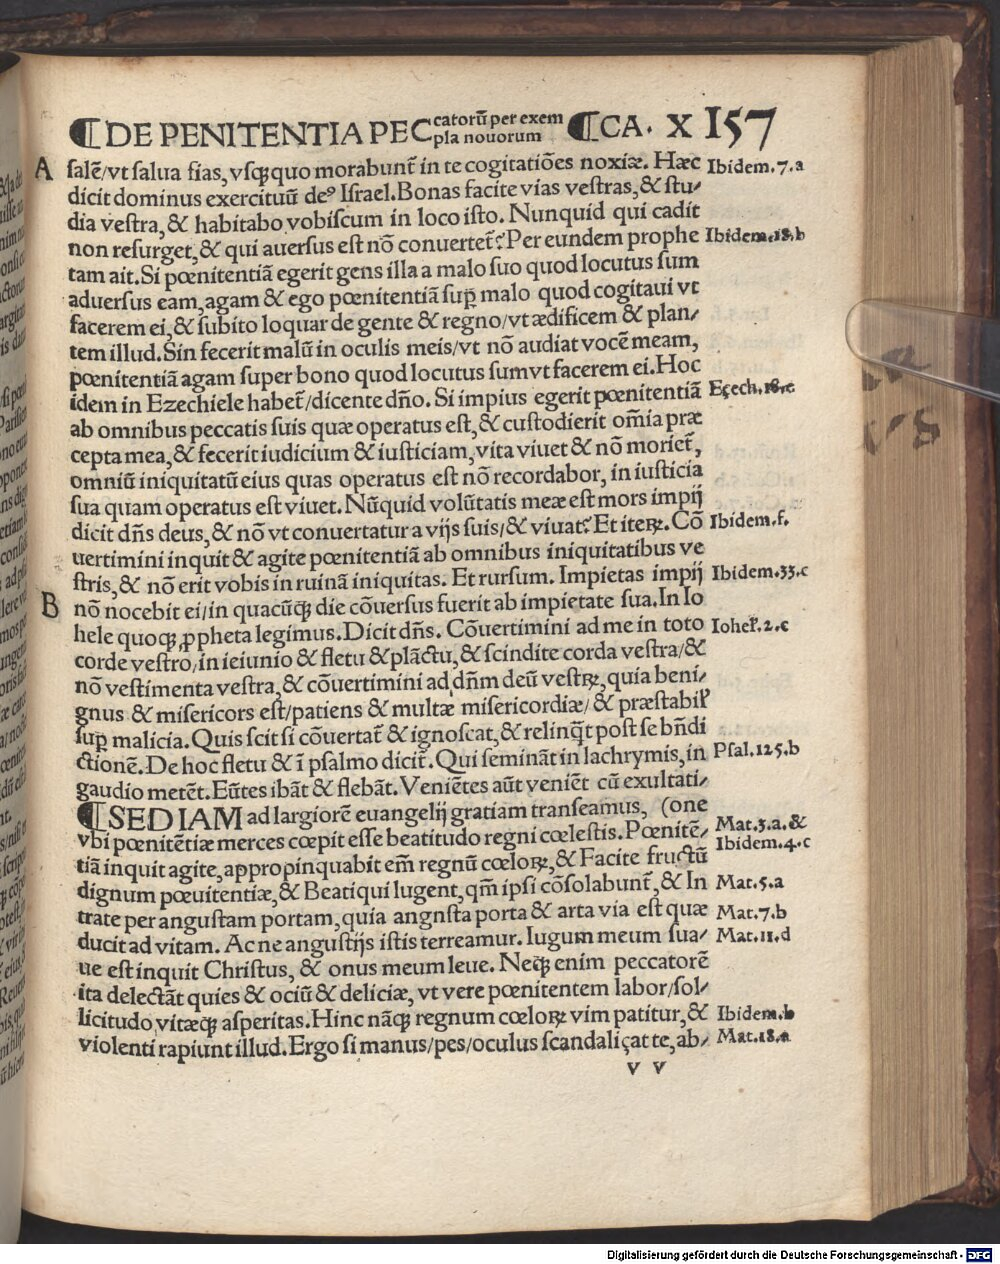 ¶DE PENITENTIA PECcatorũ per exem ¶CA. X 157
pla nouorum
A salẽ/vt salua fias, vsqꝫquo morabunt̃ in te cogitatiões noxiæ. Hæc Ibidem.7.a
dicit dominus exercituũ deꝰ Israel. Bonas facite vias vestras, & stu⸗
dia vestra, & habitabo vobiscum in loco isto. Nunquid qui cadit
non resurget, & qui auersus est nõ conuertet̃? Per eundem prophe Ibidem.18.b
tam ait. Si pœnitentiã egerit gens illa a malo suo quod locutus sum
aduersus eam, agam & ego pœnitentiã sup̃ malo quod cogitaui vt
facerem ei, & subito loquar de gente & regno/vt ædificem & plan⸗
tem illud. Sin fecerit malũ in oculis meis/vt nõ audiat vocẽ meam,
pœnitentiã agam super bono quod locutus sum vt facerem ei. Hoc
idem in Ezechiele habet̃/dicente dño. Si impius egerit pœnitentiã Eçech.18.e
ab omnibus peccatis suis quæ operatus est, & custodierit om̃ia præ
cepta mea, & fecerit iudicium & iusticiam, vita viuet & nõ moriet̃,
omniũ iniquitatũ eius quas operatus est nõ recordabor, in iusticia
sua quam operatus est viuet. Nũquid volũtatis meæ est mors impij
dicit dñs deus, & nõ vt conuertatur a vijs suis/& viuat? Et iteꝝ. Cõ Ibidem.f.
uertimini inquit & agite pœnitentiã ab omnibus iniquitatibus ve
stris, & nõ erit vobis in ruinã iniquitas. Et rursum. Impietas impij Ibidem.33.c
B nõ nocebit ei/in quacũqꝫ die cõuersus fuerit ab impietate sua. In Io
hele quoqꝫ ꝓpheta legimus. Dicit dñs. Cõuertimini ad me in toto Iohel̃.2.c
corde vestro/in ieiunio & fletu & plãctu, & scindite corda vestra/&
nõ vestimenta vestra, & cõuertimini ad dñm deũ vestꝝ, quia beni⸗
gnus & misericors est/patiens & multæ misericordiæ/& præstabil̃
sup̃ malicia. Quis scit si cõuertat̃ & ignoscat, & relinq̃t post se bñdi
ctionẽ. De hoc fletu & ĩ psalmo dicit̃. Qui seminãt in lachrymis, in Psal.125.b
gaudio metẽt. Eũtes ibãt & flebãt. Veniẽtes aũt veniẽt cũ exultati⸗
¶SED IAM ad largiorẽ euangelij gratiam transeamus, (one
vbi pœnitẽtiæ merces cœpit esse beatitudo regni cœlestis. Pœnitẽ⸗ Mat.3.a.&
tiã inquit agite, appropinquabit em̃ regnũ cœloꝝ, & Facite fructũ Ibidem.4.c
dignum pœuitentiæ, & Beati qui lugent, qm̃ ipsi cõsolabunt̃, & In Mat.5.a
trate per angustam portam, quia angnsta porta & arta via est quæ Mat.7.b
ducit ad vitam. Ac ne angustijs istis terreamur. Iugum meum sua⸗ Mat.11.d
ue est inquit Christus, & onus meum leue. Neqꝫ enim peccatorẽ
ita delectãt quies & ociũ & deliciæ, vt vere pœnitentem labor/sol⸗
licitudo, vitæqꝫ asperitas. Hinc nãqꝫ regnum cœloꝝ vim patitur, & Ibidem.b
violenti rapiunt illud. Ergo si manus/pes/oculus scandaliçat te, ab⸗ Mat.18.a
v v
Digitalisierung gefördert durch die Deutsche Forschungsgemeinschaft - DFG